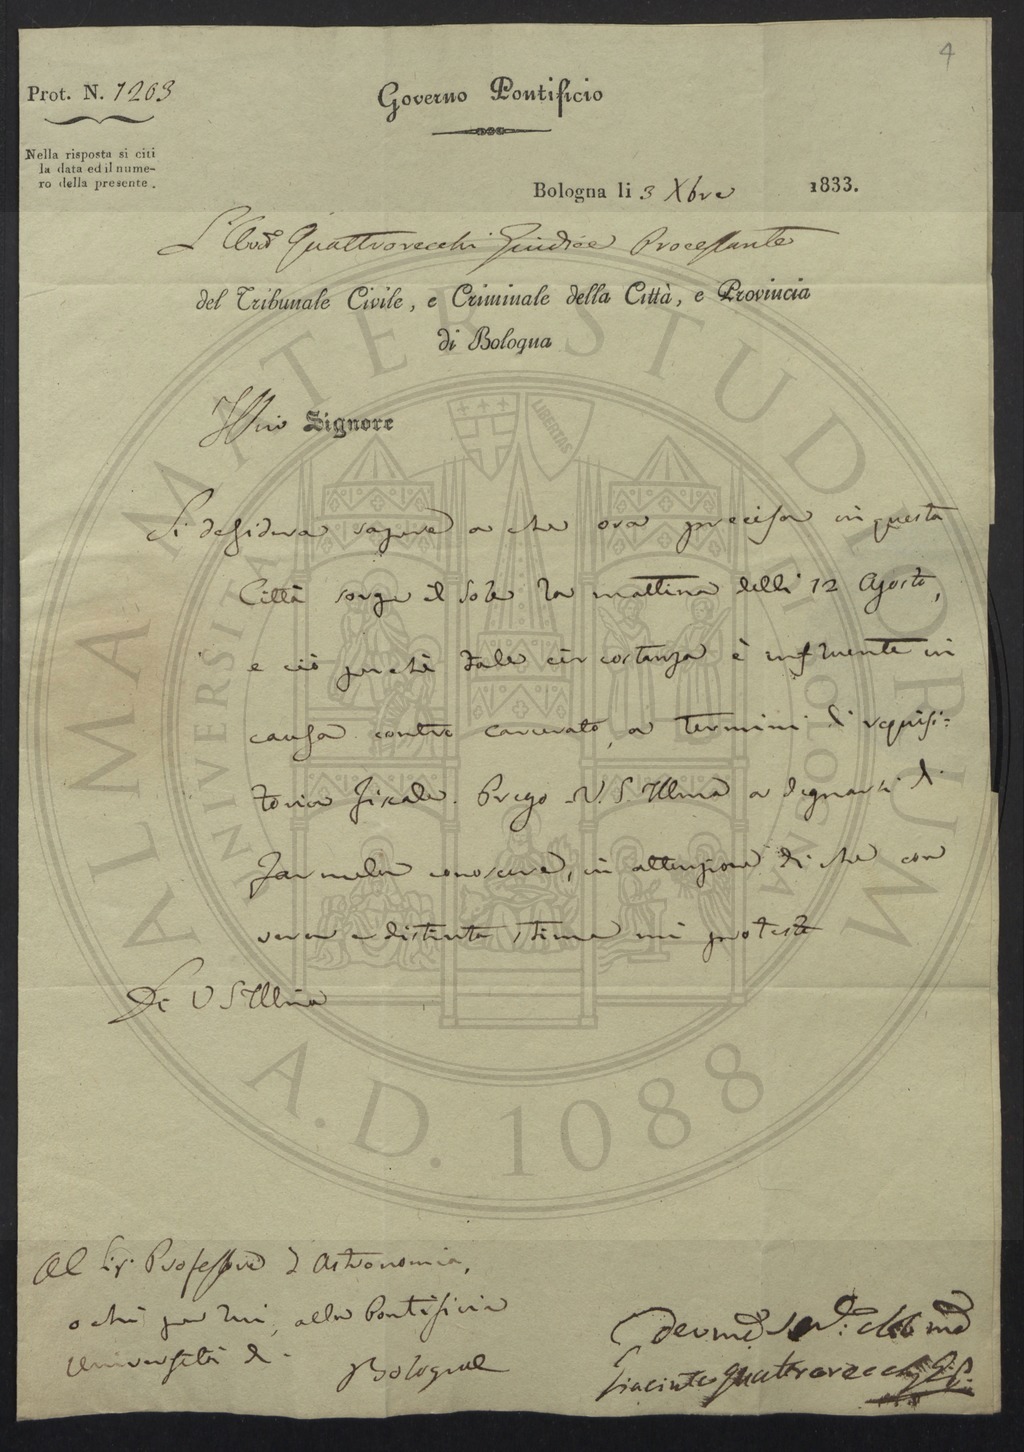 4
Prot. N. 1263
Governo Pontificio
Nella risposta si citi
la data ed il nume-
ro della presente.
Bologna li 3 Xbre 1833.
L'Avv.o Quattrorecchi Giudice Processante
del Tribunale Civile, e Criminale della Città, e Provincia
di Bologna
Illmo Signore
Si desidera sapere a che ora precisa in questa
Città sorge il Sole la mattina delli 12 Agosto,
e ciò perchè tale circostanza è influente in
causa contro carcerato, a termini di requisi=
toria fiscale. Prego V. S. Illma a degnarsi di
farmela conoscere, in attenzione di che con
vera e distinta stima mi protesto
Di V S Illma
Al Sig. Professore d'Astronomia,
o chi per lui, alla Pontificia
Università di Bologna
Devmo Servo Obbmo
Giacinto Quattrorecchi G. P.
ALMA MATER STUDIORUM
UNIVERSITÀ DI BOLOGNA
LIBERTAS
A.D. 1088